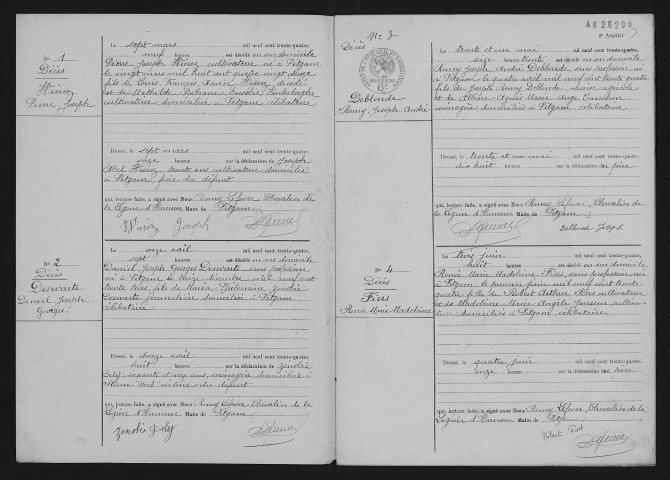 Nº 1
Décès
Joseph
Le sept mars mil neuf cent trente-quatre,
neuf heures est décédé en son domicile
Joseph cultivateur né à Pitgam
le vingt mars mil huit cent quatre vingt
fils de Louis François Xavier décédé
et de Mathilde Eusébie
cultivatrice domiciliée à Pitgam célibataire
Dressé, le sept mars mil neuf cent trente-quatre,
onze heures sur la déclaration de Joseph
Abel trente ans, cultivateur domicilié
à Pitgam, frère du défunt
qui, lecture faite, a signé avec Nous Remy Chevalier de
la Légion d'Honneur Maire de Pitgam
Joseph
Nº 2
Décès
Deswarte
Daniel Joseph
Georges
Le onze avril mil neuf cent trente-quatre,
sept heures est décédé en son domicile
Daniel Joseph Georges Deswarte sans profession
né à Pitgam le décembre mil neuf cent
trente trois, fils de Maria Zénobie
Deswarte journalière domiciliée à Pitgam
célibataire
Dressé, le onze avril mil neuf cent trente-quatre,
huit heures sur la déclaration de Zénobie
soixante et onze ans, ménagère domiciliée à
Nord, voisine du défunt
qui, lecture faite, a signé avec Nous Remy Chevalier de la
Légion d'Honneur Maire de Pitgam
AK 26299
Nº 3
Décès
Deblonde
Remy, Joseph, André
Le trente et un mai mil neuf cent trente-quatre,
seize heures trente est décédé en son domicile
Remy Joseph André Deblonde sans profession né
à Pitgam le quatre avril mil neuf cent trente quatre
fils de Joseph Remy Deblonde agricole
et de Agnès Marie Ange
ménagère domiciliés à Pitgam, célibataire
Dressé, le trente et un mai mil neuf cent trente-quatre,
dix huit heures sur la déclaration du père
qui, lecture faite, a signé avec Nous Remy Chevalier de
la Légion d'Honneur Maire de Pitgam
Deblonde Joseph
Nº 4
Décès
Fiers
Renée Marie-Madeleine
Le trois juin mil neuf cent trente-quatre,
huit heures est décédée en son domicile
Renée Marie Madeleine Fiers, sans profession née
à Pitgam le premier juin mil neuf cent trente
quatre fille de Robert Arthur Fiers cultivateur
et de Madeleine Marie Angèle Janssen
domiciliés à Pitgam, célibataire
Dressé, le quatre juin mil neuf cent trente-quatre,
onze heures sur la déclaration du père
qui, lecture faite, a signé avec Nous Remy Chevalier de la
Légion d'Honneur Maire de
Robert Fiers